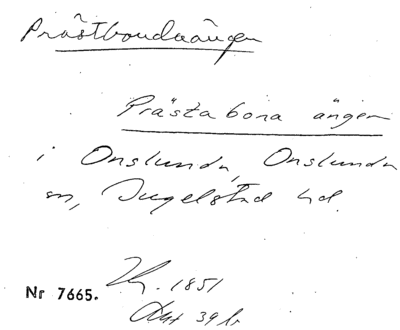 Prästbondaängen
Prästabona ängen
i Onslunda, Onslunda
sn, Ingelstad hd.
1851
Nr 7665.
Akt 39 b